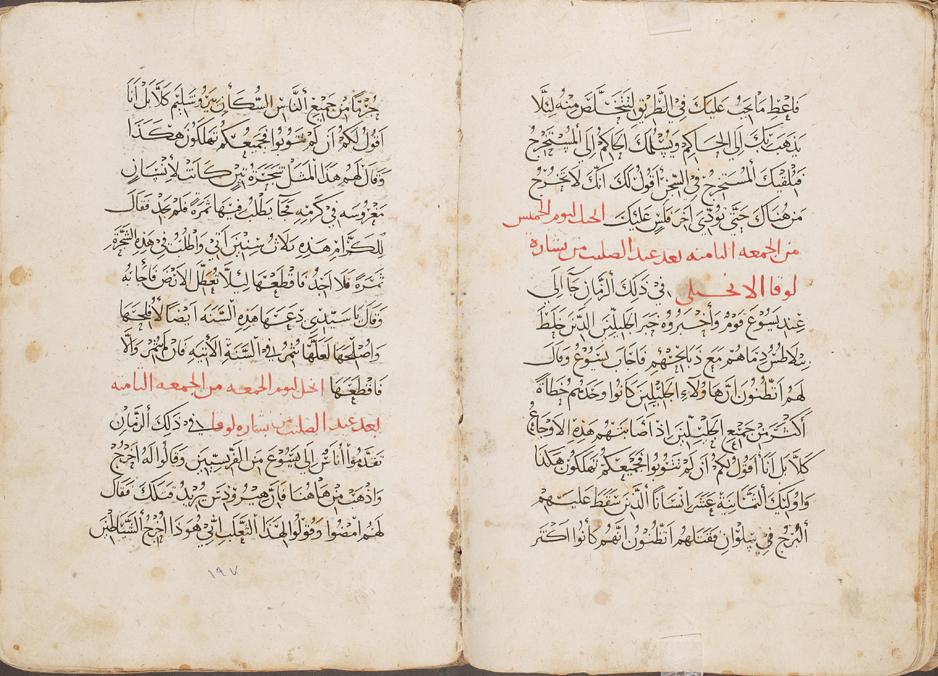 فاعطِ ما يجب عليك في الطريق لتتخلص منه لئلا
يذهب بك الى الحاكم ويسلمك الحاكم الى المستخرج
فيلقيك المستخرج في السجن اقول لك انك لا تخرج
من هناك حتى تؤدي اخر فلس عليك انجيل اليوم الخميس
من الجمعه الثامنه بعد عيد الصليب من بشارة
لوقا الانجيلي في ذلك الزمان جآ الى
عند يسوع قوم وأخبروه خبر الجليليين الذين خلط
بيلاطس دماهم مع ذبايحهم فاجاب يسوع وقال
لهم اتظنون ان هاولاء الجليليين كانوا وحدهم خطاة
أكثر من جميع الجليليين اذ اصابتهم هذه الاوجاع
كلا بل انا أقول لكم ان لم تتوبوا فجميعكم تهلكون هكذا
واوليك الثمانية عشر انسانا الذين سقط عليهم
البرج في سيلوان فقتلهم اتظنون انهم كانوا اكثر
جرما من جميع الناس السكان بيروشليم كلا بل انا
اقول لكم ان لم تتوبوا فجميعكم تهلكون هكذا
وقال لهم هذا المثل شجرة تين كانت لانسان
مغروسه في كرمه فجا يطلب فيها ثمرة فلم يجد فقال
للكرام هذه ثلاث سنين اتي واطلب في هذه الشجرة
ثمرة فلا اجد فاقطعها ليلا تعطل الارض فاجابه
وقال يا سيدي دعها هذه السنه ايضا لافلحها
واصلحها لعلها تثمر في السنة الاتيه فان لم تثمر والا
فاقطعها انجيل اليوم الجمعه من الجمعه الثامنه
بعد عيد الصليب من بشاره لوقا في ذلك الزمان
تقدموا أناس الى يسوع من الفريسيين وقالوا له اخرج
واذهب من هاهنا فان هيرودس يريد قتلك فقال
لهم امضوا وقولوا لهذا الثعلب اني هوذا اخرج الشياطين
١٩٧